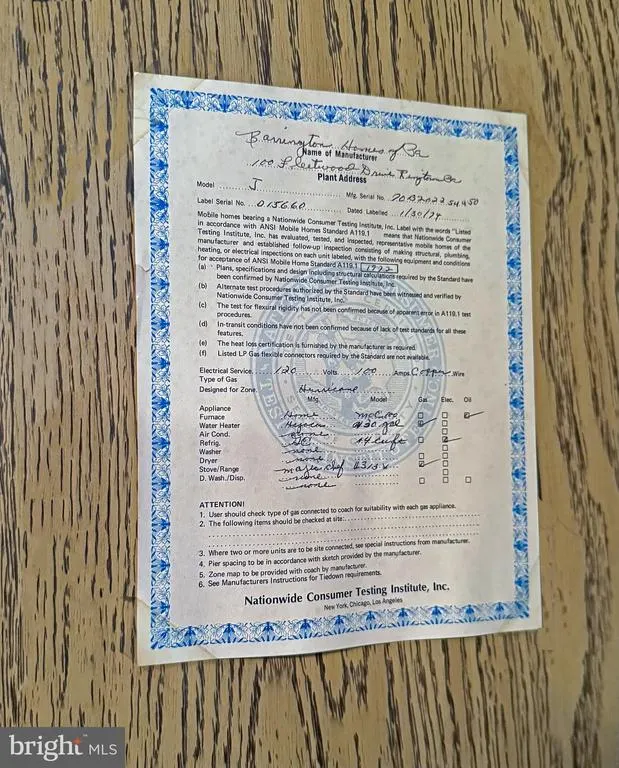 Barrington Homes of Pa
Name of Manufacturer
100 Fleetwood Drive
Plant Address
Model J Mfg. Serial No.
Label Serial No. 013660 Dated Labelled 1/30/74
Mobile homes bearing a Nationwide Consumer Testing Institute, Inc. Label with the words "Listed
in accordance with ANSI Mobile Home Standard A119.1 means that Nationwide Consumer
Testing Institute, Inc. has evaluated, tested, and inspected, representative mobile homes of the
manufacturer and established follow-up inspection consisting of making structural, plumbing,
heating, or electrical inspections on each unit labeled, with the following equipment and conditions
for acceptance of ANSI Mobile Home Standard A119.1 1972
(a) Plans, specifications and design including structural calculations required by the Standard have
been confirmed by Nationwide Consumer Testing Institute, Inc.
(b) Alternate test procedures authorized by the Standard have been witnessed and verified by
Nationwide Consumer Testing Institute, Inc.
(c) The test for flexural rigidity has not been confirmed because of apparent error in A119.1 test
procedures.
(d) In-transit conditions have not been confirmed because of lack of test standards for all these
features.
(e) The heat loss certification is furnished by the manufacturer as required.
(f) Listed LP Gas flexible connectors required by the Standard are not available.
Electrical Service 120 Volts 100 Amps Copper Wire
Type of Gas
Designed for Zone Hurricane
Mfg. Model Gas Elec. Oil
Appliance
Furnace Home
Water Heater 30 gal
Air Cond. none
Refrig. GE 14 cu ft
Washer none
Dryer none
Stove/Range
D. Wash./Disp. none
none
ATTENTION!
1. User should check type of gas connected to coach for suitability with each gas appliance.
2. The following items should be checked at site:
3. Where two or more units are to be site connected, see special instructions from manufacturer.
4. Pier spacing to be in accordance with sketch provided by the manufacturer.
5. Zone map to be provided with coach by manufacturer.
6. See Manufacturers Instructions for Tiedown requirements.
Nationwide Consumer Testing Institute, Inc.
New York, Chicago, Los Angeles
bright MLS